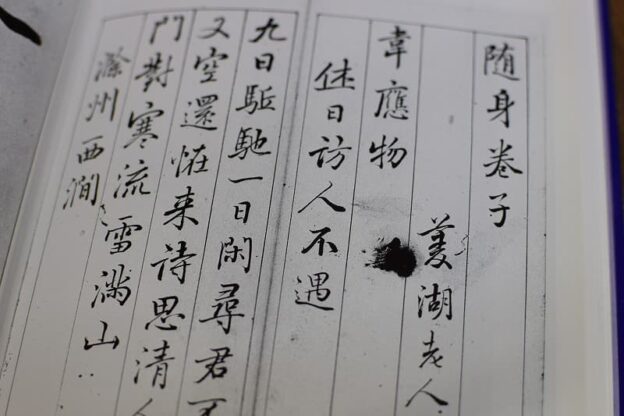 随身卷子
湖老人
韋應物
休日访人不遇
九日駈馳一日閑尋君不
又空還怪来诗思清人
門對寒流雪满山..
滁州西澗